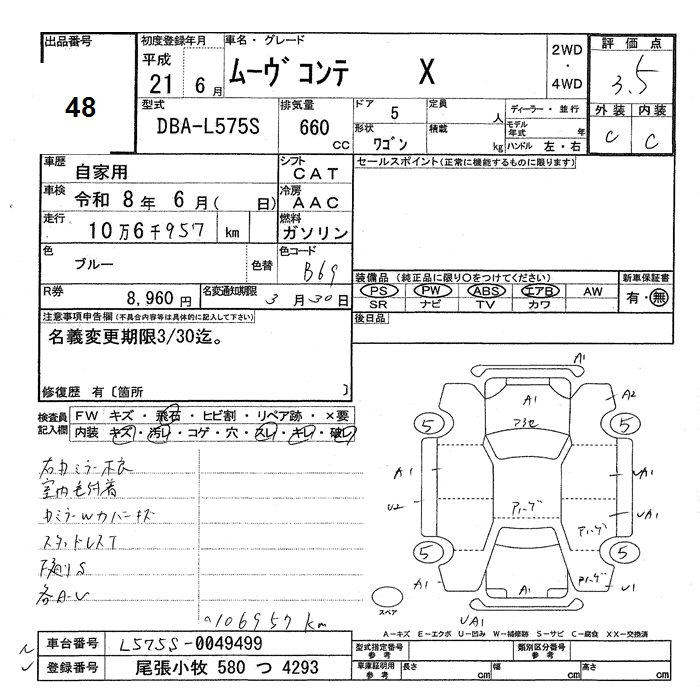 出品番号
48
初度登録年月 平成 21 6月
車名・グレード
ムーヴ コンテ X
2WD
・
4WD
評価点
3.5
外装 内装
C C
型式
DBA-L575S
排気量
660 CC
ドア 5
形状 ワゴン
定員 人
積載 kg
ディーラー・並行
モデル年式 年
ハンドル 左・右
車歴 自家用
車検 令和 8年 6月( 日)
走行 10万6千957 km
色 ブルー 色替
シフト CAT
冷房 AAC
燃料 ガソリン
色コード B69
R券 8,960円
名変通知期限 3月30日
セールスポイント(正常に機能するものに限ります)
装備品 (純正品に限り〇をつけてください)
PS PW ABS エアB AW
SR ナビ TV カワ
新車保証書
有・無
後日品
注意事項申告欄(不具合内容等は具体的に記入して下さい)
名義変更期限3/30迄。
修復歴 有〔箇所 〕
検査員記入欄
FW キズ・飛石・ヒビ割・リペア跡・×要
内装 キズ・汚レ・コゲ・穴・スレ・キレ・破レ
室内毛付着
カミラーWカバーキズ
スタッドレスT
下廻りS
各A・U
106957km
A1
A1
A2
アラセ
5 5
A1 UA1
U2 UA1
アハーゲ
アハーゲ
5 5
A1 A1 アハーゲ U1
UA1
スペア
A-キズ E-エクボ U-凹み W-補修跡 S-サビ C-腐食 XX-交換済
車台番号 L575S-0049499
登録番号 尾張小牧 580 つ 4293
型式指定番号 参考
類別区分番号 参考
車庫証明用 参考 長さ cm 幅 cm 高さ cm